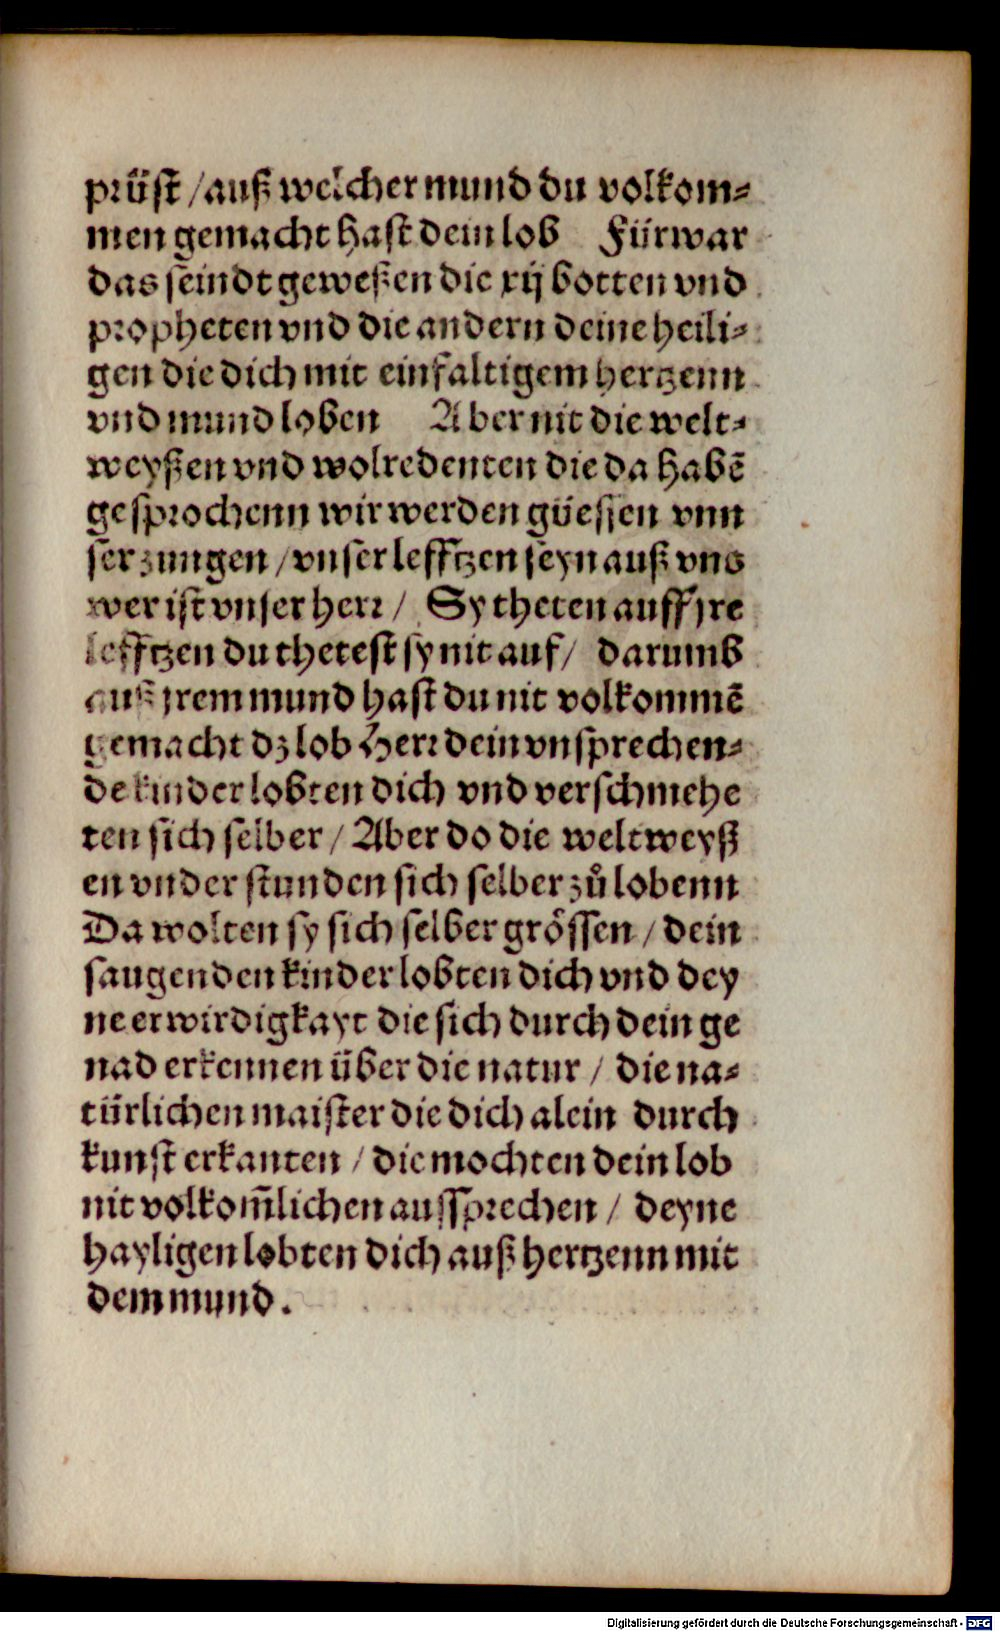 prüst /auß welcher mund du volkom⸗
men gemacht hast dein lob Fürwar
das seindt geweßen die xij botten vnd
propheten vnd die andern deine heili⸗
gen die dich mit einfaltigem hertzenn
vnd mund loben Aber nit die welt⸗
weyßen vnd wolredenten die da habē
gesprochenn wir werden güessen vnn
ser zungen /vnser lefftzen seyn auß vns
wer ist vnser herr / Sy theten auff jre
lefftzen du thetest sy nit auf/ darumb
auß jrem mund hast du nit volkommē
gemacht dz lob Herr dein vnsprechen⸗
de kinder lobten dich vnd verschmehe
ten sich selber / Aber do die weltweyß
en vnderstunden sich selber zů lobenn
Da wolten sy sich selber grössen / dein
saugenden kinder lobten dich vnd dey
ne erwirdigkayt die sich durch dein ge
nad erkennen über die natur / die na⸗
türlichen maister die dich alein durch
kunst erkanten / die mochten dein lob
nit volkom̃lichen aussprechen / deyne
hayligen lobten dich auß hertzenn mit
dem mund.
Digitalisierung gefördert durch die Deutsche Forschungsgemeinschaft - DFG